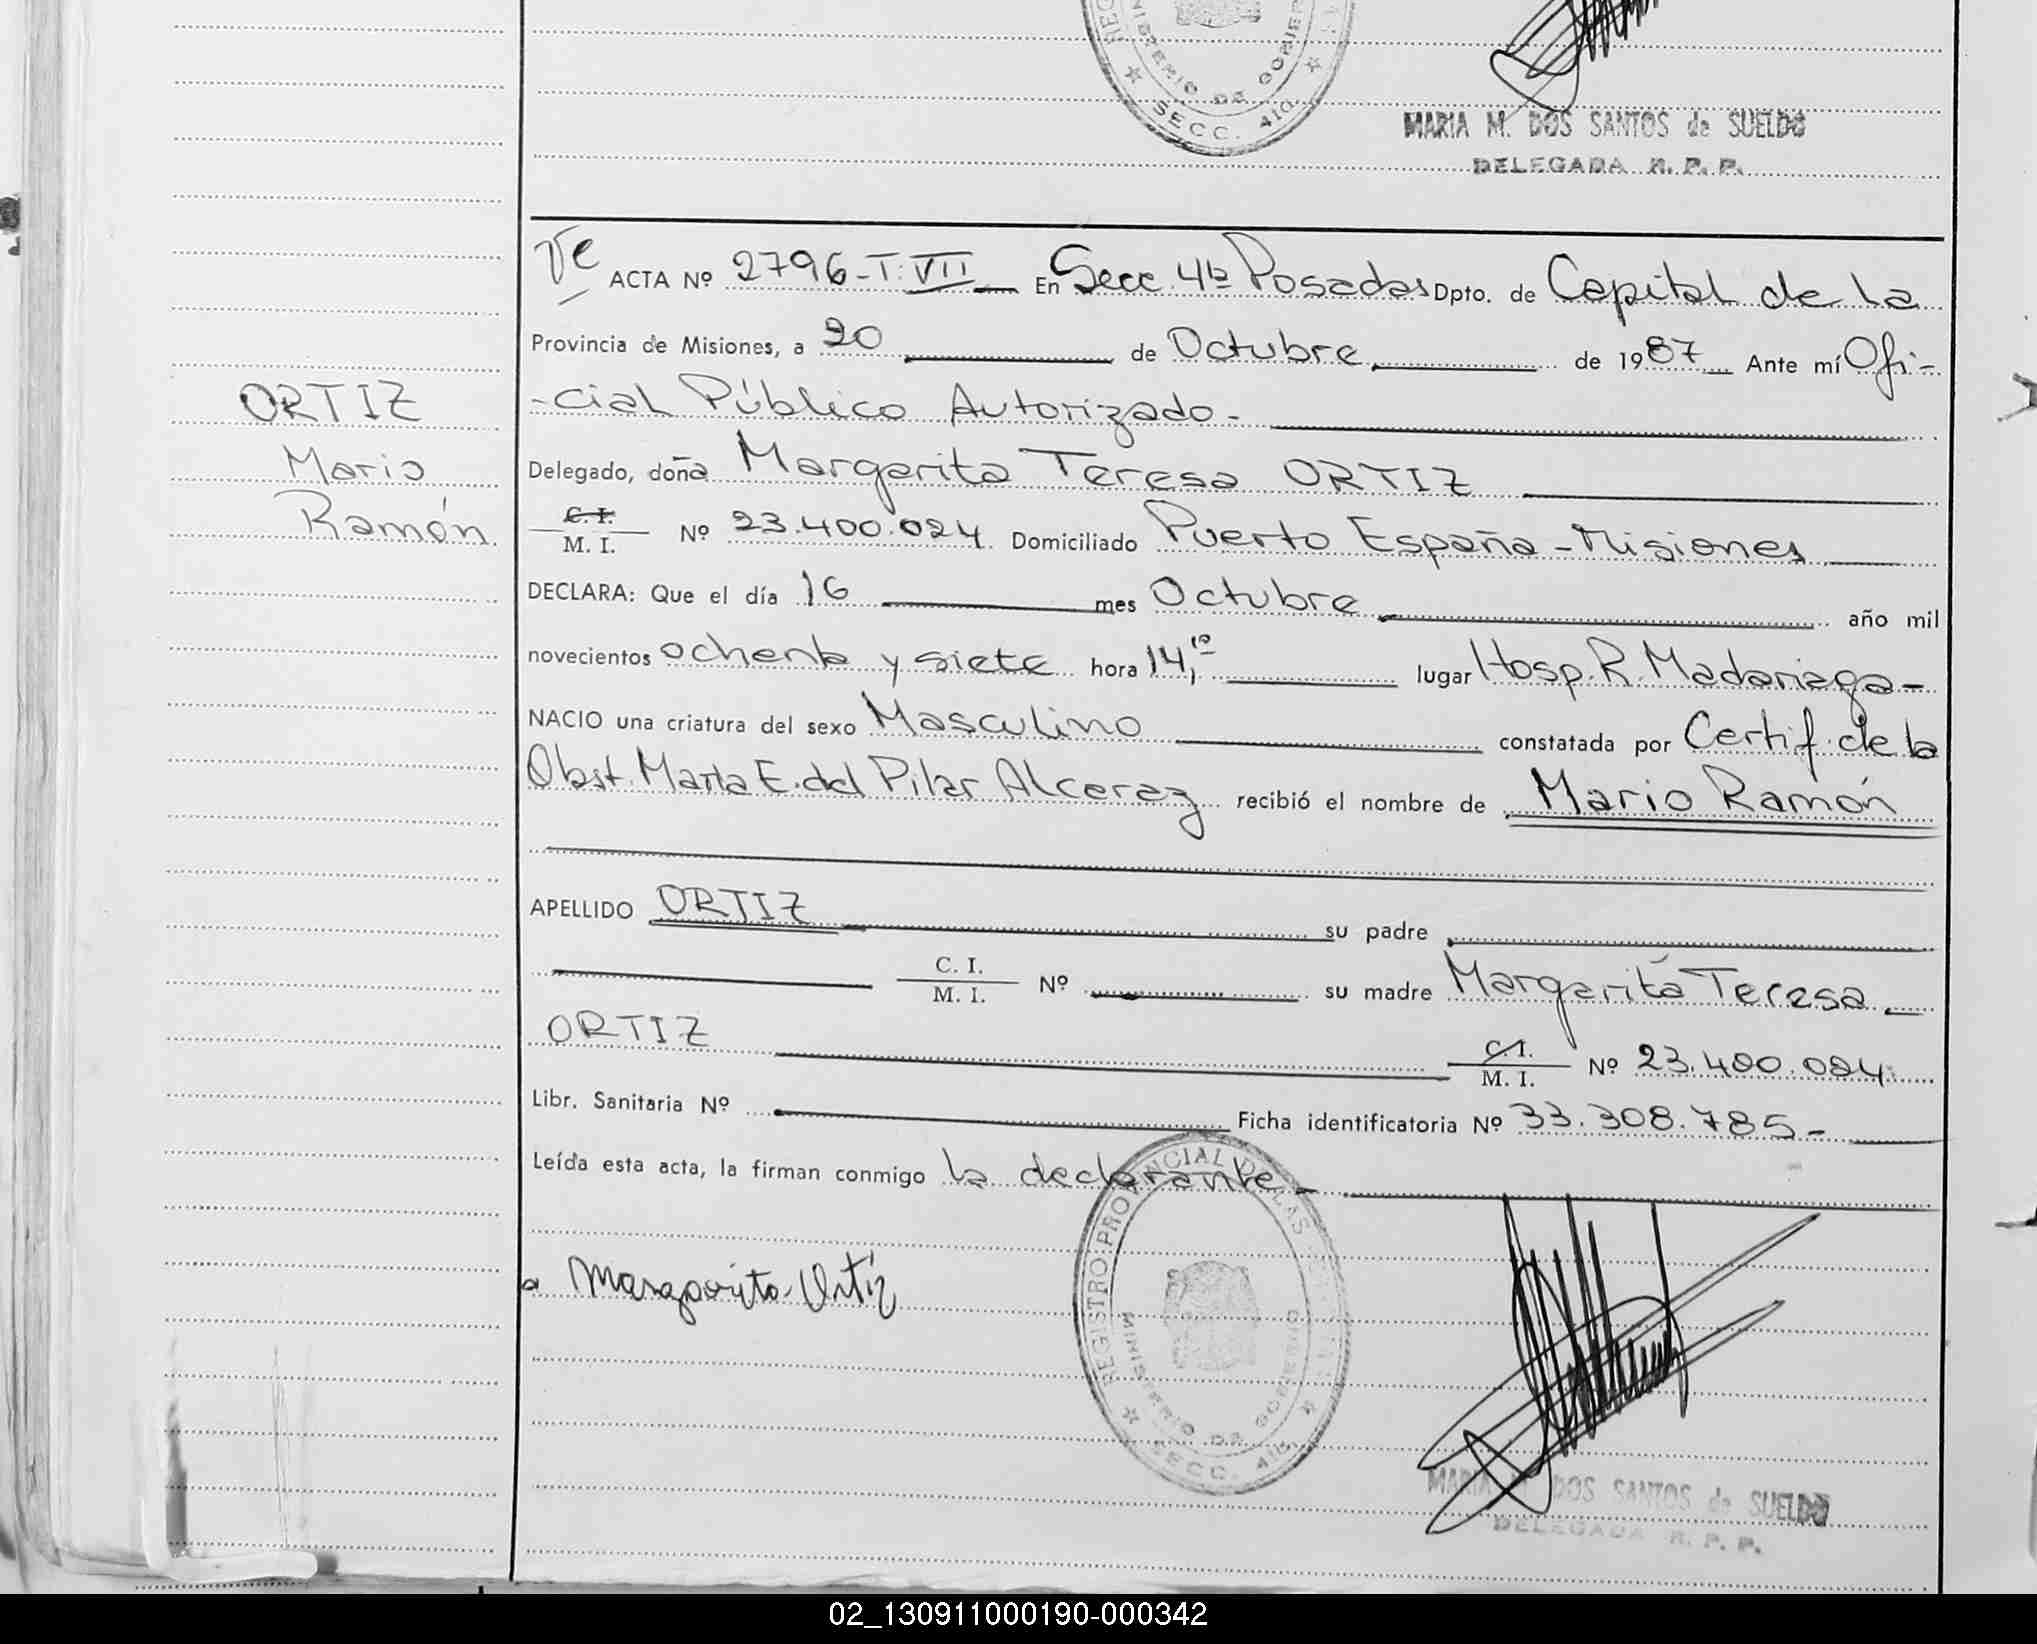 MINISTERIO DE GOBIER
SECC. 4ta.
MARIA M. DOS SANTOS de SUELDO
DELEGADA R. P. P.
ACTA Nº 2796-T: VII En Secc. 4ta Posadas Dpto. de Capital de la
Provincia de Misiones, a 20 de Octubre de 1987 Ante mí Ofi-
-cial Público Autorizado-
ORTIZ
Mario
Ramón
Delegado, doña Margarita Teresa ORTIZ
C. I.
M. I. Nº 23.400.024 Domiciliado Puerto España - Misiones
DECLARA: Que el día 16 mes Octubre año mil
novecientos ochenta y siete hora 14,10 lugar Hosp. R. Madariaga-
NACIO una criatura del sexo Masculino constatada por Certif. de la
Obst. María E. del Pilar Alceraz recibió el nombre de Mario Ramón
APELLIDO ORTIZ su padre
C. I.
M. I. Nº su madre Margarita Teresa
ORTIZ C. I.
M. I. Nº 23.400.024
Libr. Sanitaria Nº Ficha identificatoria Nº 33.308.785-
Leída esta acta, la firman conmigo la declarante-
REGISTRO PROVINCIAL DE LAS
MINISTERIO DE GOBIERNO
SECC. 4ta.
Margarita Ortiz
MARIA M. DOS SANTOS de SUELDO
DELEGADA R. P. P.
02_130911000190-000342